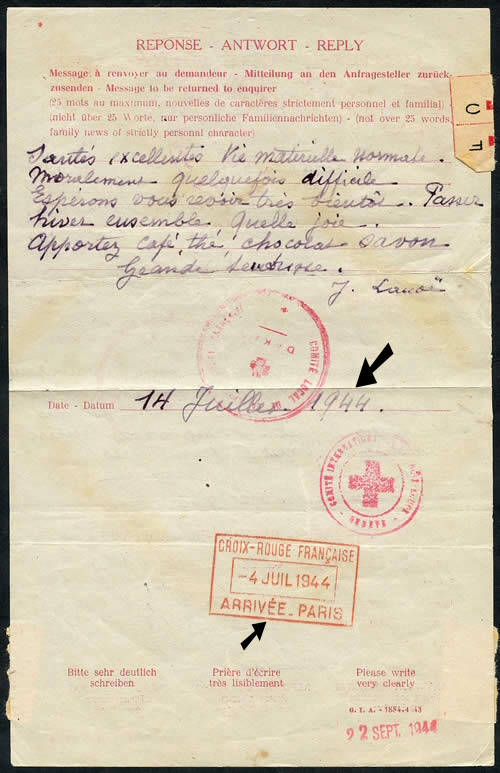 REPONSE - ANTWORT - REPLY
Message à renvoyer au demandeur - Mitteilung an den Anfragesteller zurück-
zusenden - Message to be returned to enquirer
(25 mots au maximum, nouvelles de caractères strictement personnel et familial)
(nicht über 25 Worte, nur persönliche Familiennachrichten) - (not over 25 words,
family news of strictly personal character)
Santés excellentes Vie matérielle normale.
Moralement quelquefois difficile
Espérons vous revoir très bientôt. Passer
hiver ensemble. Quelle joie.
Apportez café, thé, chocolat savon
Grande tendresse.
J.
COMITÉ LOCAL DE
Date - Datum 14 Juillet 1944.
COMITÉ INTERNATIONAL
GENÈVE
CROIX-ROUGE FRANÇAISE
-4 JUIL 1944
ARRIVÉE-PARIS
Bitte sehr deutlich
schreiben
Prière d'écrire
très lisiblement
Please write
very clearly
G. I. A. - 1884-4-43
22 SEPT. 1944